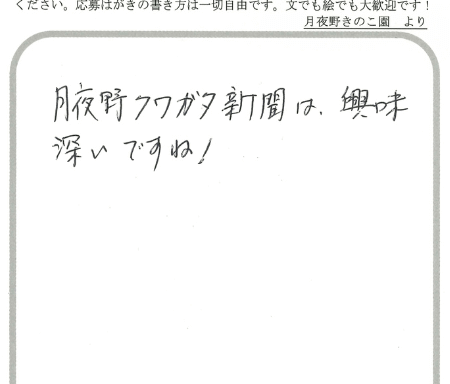 ください。応募はがきの書き方は一切自由です。文でも絵でも大歓迎です！
月夜野きのこ園　より
月夜野クワガタ新聞は、興味
深いですね！